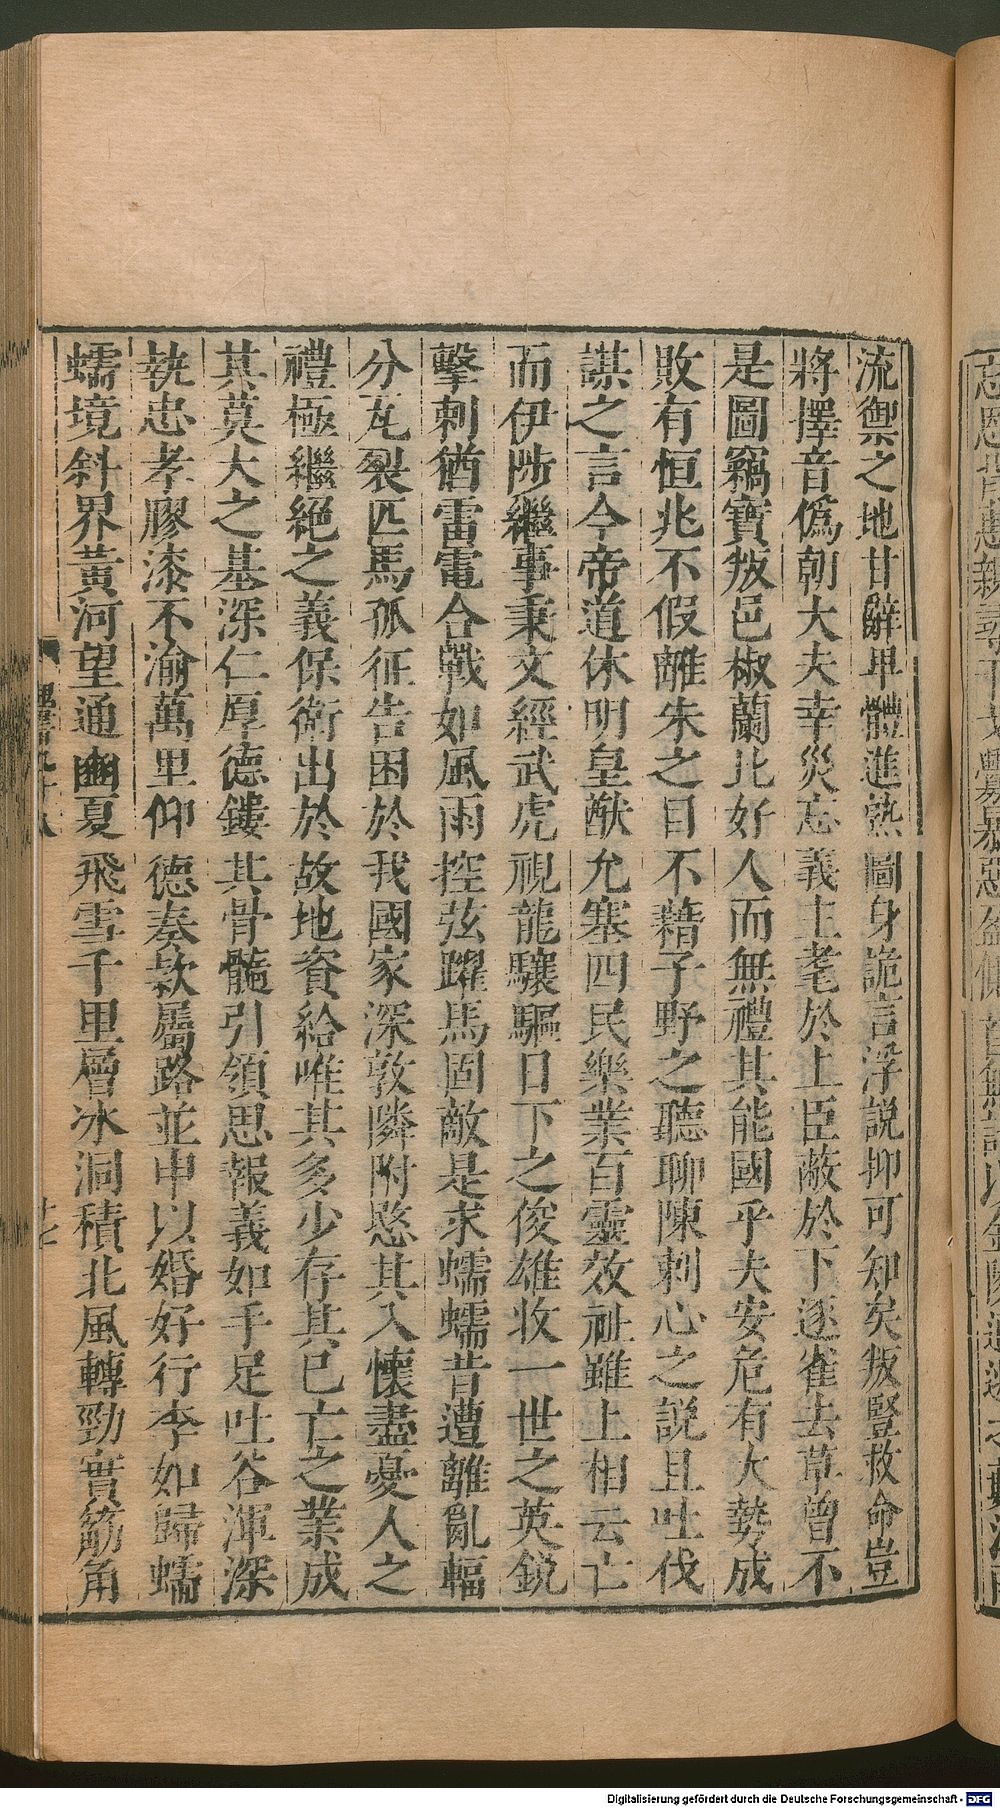 流禦之地甘辭卑體進熟圖身詭言浮說抑可知矣叛豎救命豈
將擇音僞朝大夫幸災忘義主耄於上臣蔽於下逐雀去草曾不
是圖竊寶叛邑椒蘭比好人而無禮其能國乎夫安危有大勢成
敗有恒兆不假離朱之目不藉子野之聽聊陳刺心之說且吐伐
謀之言今帝道休明皇猷允塞四民樂業百靈效祉雖上相云亡
而伊陟繼事秉文經武虎視龍驤驅日下之俊雄收一世之英銳
擊刺猶雷電合戰如風雨控弦躍馬固敵是求蠕蠕昔遭離亂輻
分瓦裂匹馬孤征告困於我國家深敦隣附愍其入懷盡憂人之
禮極繼絕之義保衛出於故地資給唯其多少存其已亡之業成
其莫大之基深仁厚德鏤其骨髓引領思報義如手足吐谷渾深
執忠孝膠漆不渝萬里仰德奏款屬路並申以婚好行李如歸蠕
蠕境斜界黃河望通豳夏飛雪千里層冰洞積北風轉勁實筋角
魏書九十八
十七
Digitalisierung gefördert durch die Deutsche Forschungsgemeinschaft - DFG